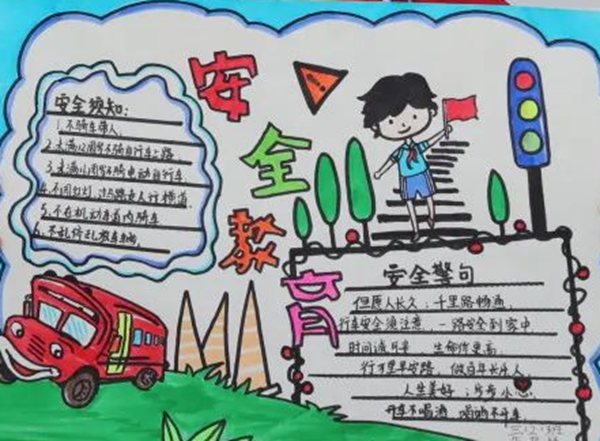 安全教育
安全须知：
1.不骑车带人.
2.未满12周岁不骑自行车上路
3.未满16周岁不骑电动自行车.
4.不闯红灯,过马路走人行横道.
5.不在机动车道内骑车
6.不乱停乱放车辆.
安全警句
但愿人长久；千里路畅通.
行车安全须注意，一路安全到家中
时间诚可贵 生命价更高.
行万里平安路，做百年长乐人.
人生美好；步步小心.
开车不喝酒 喝酒不开车.